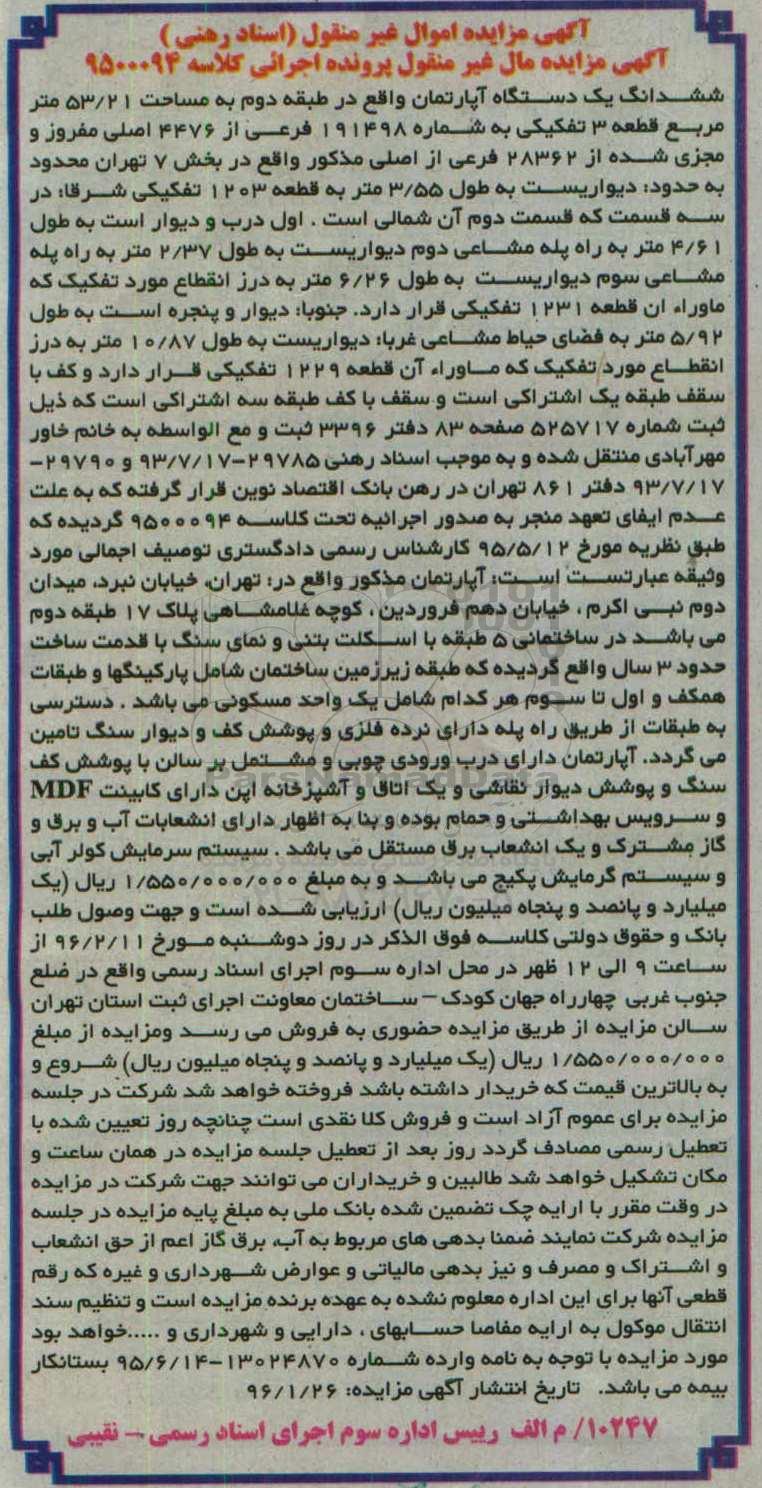 آگهی مزایده اموال غیر منقول (اسناد رهنی)
آگهی مزایده مال غیر منقول پرونده اجرائی کلاسه ۹۵۰۰۰۹۴
ششدانگ یک دستگاه آپارتمان واقع در طبقه دوم به مساحت ۵۳/۲۱ متر
مربع قطعه ۳ تفکیکی به شماره ۱۹۱۴۹۸ فرعی از ۴۴۷۶ اصلی مفروز و
مجزی شده از ۲۸۳۶۲ فرعی از اصلی مذکور واقع در بخش ۷ تهران محدود
به حدود: دیواریست به طول ۳/۵۵ متر به قطعه ۱۲۰۳ تفکیکی شرقا: در
سه قسمت که قسمت دوم آن شمالی است . اول درب و دیوار است به طول
۴/۶۱ متر به راه پله مشاعی دوم دیواریست به طول ۲/۳۷ متر به راه پله
مشاعی سوم دیواریست به طول ۶/۲۶ متر به درز انقطاع مورد تفکیک که
ماوراء ان قطعه ۱۲۳۱ تفکیکی قرار دارد. جنوبا: دیوار و پنجره است به طول
۵/۹۲ متر به فضای حیاط مشاعی غربا: دیواریست به طول ۱۰/۸۷ متر به درز
انقطاع مورد تفکیک که ماوراء آن قطعه ۱۲۲۹ تفکیکی قرار دارد و کف با
سقف طبقه یک اشتراکی است و سقف با کف طبقه سه اشتراکی است که ذیل
ثبت شماره ۵۲۵۷۱۷ صفحه ۸۳ دفتر ۳۳۹۶ ثبت و مع الواسطه به خانم خاور
مهرآبادی منتقل شده و به موجب اسناد رهنی ۲۹۷۸۵-۹۳/۷/۱۷ و ۲۹۷۹۰-
۹۳/۷/۱۷ دفتر ۸۶۱ تهران در رهن بانک اقتصاد نوین قرار گرفته که به علت
عدم ایفای تعهد منجر به صدور اجرائیه تحت کلاسه ۹۵۰۰۰۹۴ گردیده که
طبق نظریه مورخ ۹۵/۵/۱۲ کارشناس رسمی دادگستری توصیف اجمالی مورد
وثیقه عبارتست است: آپارتمان مذکور واقع در: تهران، خیابان نبرد، میدان
دوم نبی اکرم ، خیابان دهم فروردین ، کوچه غلامشاهی پلاک ۱۷ طبقه دوم
می باشد در ساختمانی ۵ طبقه با اسکلت بتنی و نمای سنگ با قدمت ساخت
حدود ۳ سال واقع گردیده که طبقه زیرزمین ساختمان شامل پارکینگها و طبقات
همکف و اول تا سوم هر کدام شامل یک واحد مسکونی می باشد . دسترسی
به طبقات از طریق راه پله دارای نرده فلزی و پوشش کف و دیوار سنگ تامین
می گردد. آپارتمان دارای درب ورودی چوبی و مشتمل بر سالن با پوشش کف
سنگ و پوشش دیوار نقاشی و یک اتاق و آشپزخانه اپن دارای کابینت MDF
و سرویس بهداشتی و حمام بوده و بنا به اظهار دارای انشعابات آب و برق و
گاز مشترک و یک انشعاب برق مستقل می باشد . سیستم سرمایش کولر آبی
و سیستم گرمایش پکیج می باشد و به مبلغ ۱/۵۵۰/۰۰۰/۰۰۰ ریال (یک
میلیارد و پانصد و پنجاه میلیون ریال) ارزیابی شده است و جهت وصول طلب
بانک و حقوق دولتی کلاسه فوق الذکر در روز دوشنبه مورخ ۹۶/۲/۱۱ از
ساعت ۹ الی ۱۲ ظهر در محل اداره سوم اجرای اسناد رسمی واقع در ضلع
جنوب غربی چهارراه جهان کودک – ساختمان معاونت اجرای ثبت استان تهران
سالن مزایده از طریق مزایده حضوری به فروش می رسد ومزایده از مبلغ
۱/۵۵۰/۰۰۰/۰۰۰ ریال (یک میلیارد و پانصد و پنجاه میلیون ریال) شروع و
به بالاترین قیمت که خریدار داشته باشد فروخته خواهد شد شرکت در جلسه
مزایده برای عموم آزاد است و فروش کلا نقدی است چنانچه روز تعیین شده با
تعطیل رسمی مصادف گردد روز بعد از تعطیل جلسه مزایده در همان ساعت و
مکان تشکیل خواهد شد طالبین و خریداران می توانند جهت شرکت در مزایده
در وقت مقرر با ارایه چک تضمین شده بانک ملی به مبلغ پایه مزایده در جلسه
مزایده شرکت نمایند ضمنا بدهی های مربوط به آب، برق گاز اعم از حق انشعاب
و اشتراک و مصرف و نیز بدهی مالیاتی و عوارض شهرداری و غیره که رقم
قطعی آنها برای این اداره معلوم نشده به عهده برنده مزایده است و تنظیم سند
انتقال موکول به ارایه مفاصا حسابهای ، دارایی و شهرداری و .....خواهد بود
مورد مزایده با توجه به نامه وارده شماره ۱۳۰۲۴۸۷۰-۹۵/۶/۱۴ بستانکار
بیمه می باشد. تاریخ انتشار آگهی مزایده: ۹۶/۱/۲۶
۱۰۲۴۷/ م الف رییس اداره سوم اجرای اسناد رسمی – نقیبی
ParsNamadData